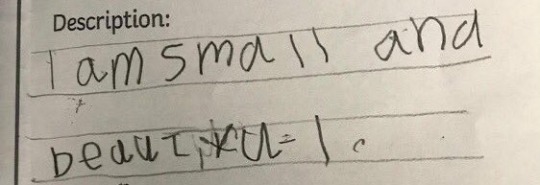 Description:
I am small and
beautiful.